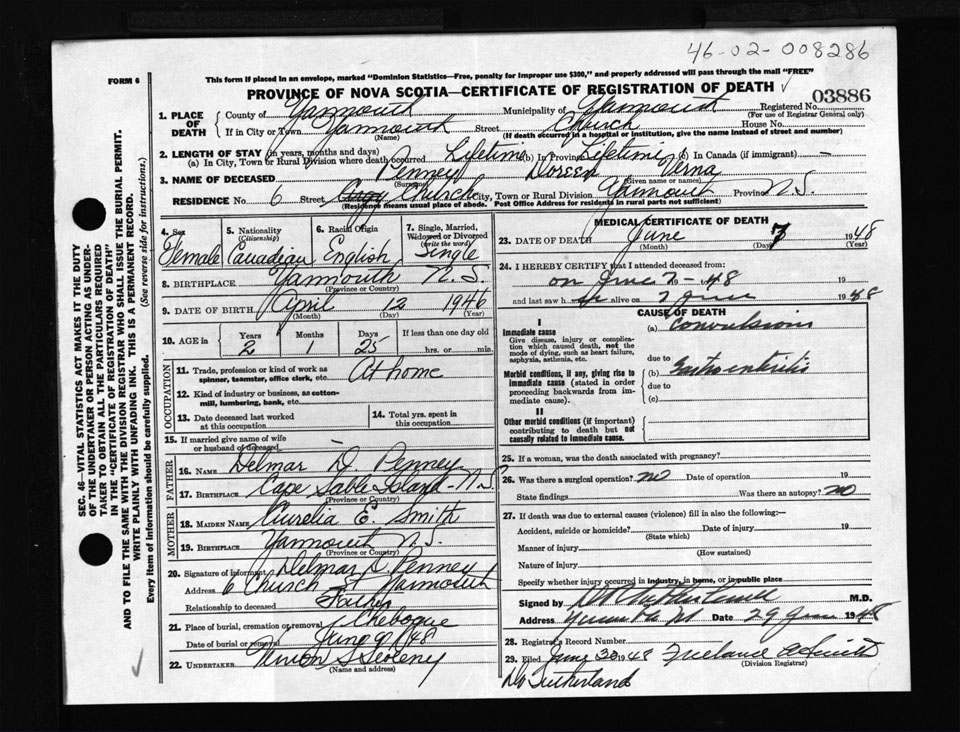 46-02-008286
FORM 6
This form if placed in an envelope, marked "Dominion Statistics—Free, penalty for improper use $300," and properly addressed will pass through the mail "FREE"
PROVINCE OF NOVA SCOTIA—CERTIFICATE OF REGISTRATION OF DEATH
03886
1. PLACE OF DEATH
County of Yarmouth Municipality of Yarmouth Registered No.
(For use of Registrar General only)
If in City or Town Yarmouth Street Church House No.
(Name) (If death occurred in a hospital or institution, give the name instead of street and number)
2. LENGTH OF STAY (in years, months and days)
(a) In City, Town or Rural Division where death occurred Lifetime (b) In Province Lifetime (c) In Canada (if immigrant) —
3. NAME OF DECEASED Penney Doreen Verna
(Surname) (Given name or names)
RESIDENCE No. 6 Street Church City, Town or Rural Division Yarmouth Province N.S.
(Residence means usual place of abode. Post Office Address for residents in rural parts not sufficient)
4. Sex Female
5. Nationality (Citizenship) Canadian
6. Racial Origin English
7. Single, Married, Widowed or Divorced (write the word) Single
8. BIRTHPLACE Yarmouth N.S.
(Province or Country)
9. DATE OF BIRTH April 12 1946
(Month) (Day) (Year)
10. AGE in Years 2 Months 1 Days 25 If less than one day old
hrs. or min.
OCCUPATION
11. Trade, profession or kind of work as spinner, teamster, office clerk, etc. At home
12. Kind of industry or business, as cotton-mill, lumbering, bank, etc.
13. Date deceased last worked at this occupation
14. Total yrs. spent in this occupation
15. If married give name of wife or husband of deceased —
FATHER
16. NAME Delmar D. Penney
17. BIRTHPLACE Cape Sable Island - N.S.
(Province or Country)
MOTHER
18. MAIDEN NAME Aurelia E. Smith
19. BIRTHPLACE Yarmouth N.S.
(Province or Country)
20. Signature of informant Delmar D. Penney
Address 6 Church St Yarmouth
Relationship to deceased Father
21. Place of burial, cremation or removal Chebogue
Date of burial or removal June 9/48
22. UNDERTAKER
(Name and address)
MEDICAL CERTIFICATE OF DEATH
23. DATE OF DEATH June 7 1948
(Month) (Day) (Year)
24. I HEREBY CERTIFY that I attended deceased from:
on June 7 - 48 19
and last saw h alive on 7 June 1948
CAUSE OF DEATH
I
Immediate cause
Give disease, injury or complication which caused death, not the mode of dying, such as heart failure, asphyxia, asthenia, etc.
(a) Convulsions
due to
Morbid conditions, if any, giving rise to immediate cause (stated in order proceeding backwards from immediate cause).
(b) Gastroenteritis
due to
(c)
II
Other conditions (if important) contributing to death but not causally related to immediate cause.
25. If a woman, was the death associated with pregnancy?
26. Was there a surgical operation? No Date of operation 19
State findings Was there an autopsy? No
27. If death was due to external causes (violence) fill in also the following:—
Accident, suicide or homicide? Date of injury 19
(State which)
Manner of injury
(How sustained)
Nature of injury
Specify whether injury occurred in industry, in home, or in public place
Signed by M.D.
Address Date 29 June 1948
28. Registrar's Record Number
29. Filed June 30 1948
(Division Registrar)
Sutherland
SEC. 46—VITAL STATISTICS ACT MAKES IT THE DUTY OF THE UNDERTAKER OR PERSON ACTING AS UNDERTAKER TO OBTAIN ALL THE PARTICULARS REQUIRED IN THE "CERTIFICATE OF REGISTRATION OF DEATH" AND TO FILE THE SAME WITH THE DIVISION REGISTRAR WHO SHALL ISSUE THE BURIAL PERMIT.
WRITE PLAINLY WITH UNFADING INK. THIS IS A PERMANENT RECORD.
Every item of information should be carefully supplied. (See reverse side for instructions.)